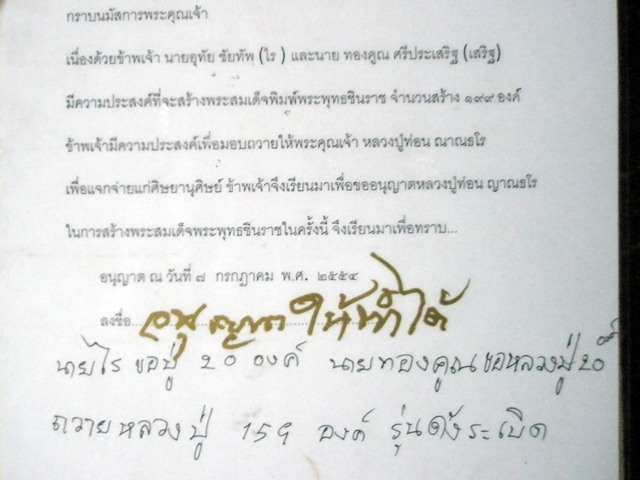 กราบนมัสการพระคุณเจ้า
เนื่องด้วยข้าพเจ้า นายอุทัย ชัยทัพ (ไร ) และนาย ทองคูณ ศรีประเสริฐ (เสริฐ)
มีความประสงค์ที่จะสร้างพระสมเด็จพิมพ์พระพุทธชินราช จำนวนสร้าง ๑๙๙ องค์
ข้าพเจ้ามีความประสงค์เพื่อมอบถวายให้พระคุณเจ้า หลวงปู่ท่อน ณาณธโร
เพื่อแจกจ่ายแก่ศิษยานุศิษย์ ข้าพเจ้าจึงเรียนมาเพื่อขออนุญาตหลวงปู่ท่อน ญาณธโร
ในการสร้างพระสมเด็จพระพุทธชินราชในครั้งนี้ จึงเรียนมาเพื่อทราบ...
อนุญาต ณ วันที่ ๘ กรกฎาคม พ.ศ. ๒๕๕๔
ลงชื่อ... อนุญาต ให้ทำได้
นายไร ขอปู่ 20 องค์ นายทองคูณ ขอหลวงปู่ 20
ถวายหลวงปู่ 159 องค์ รุ่นดังระเบิด